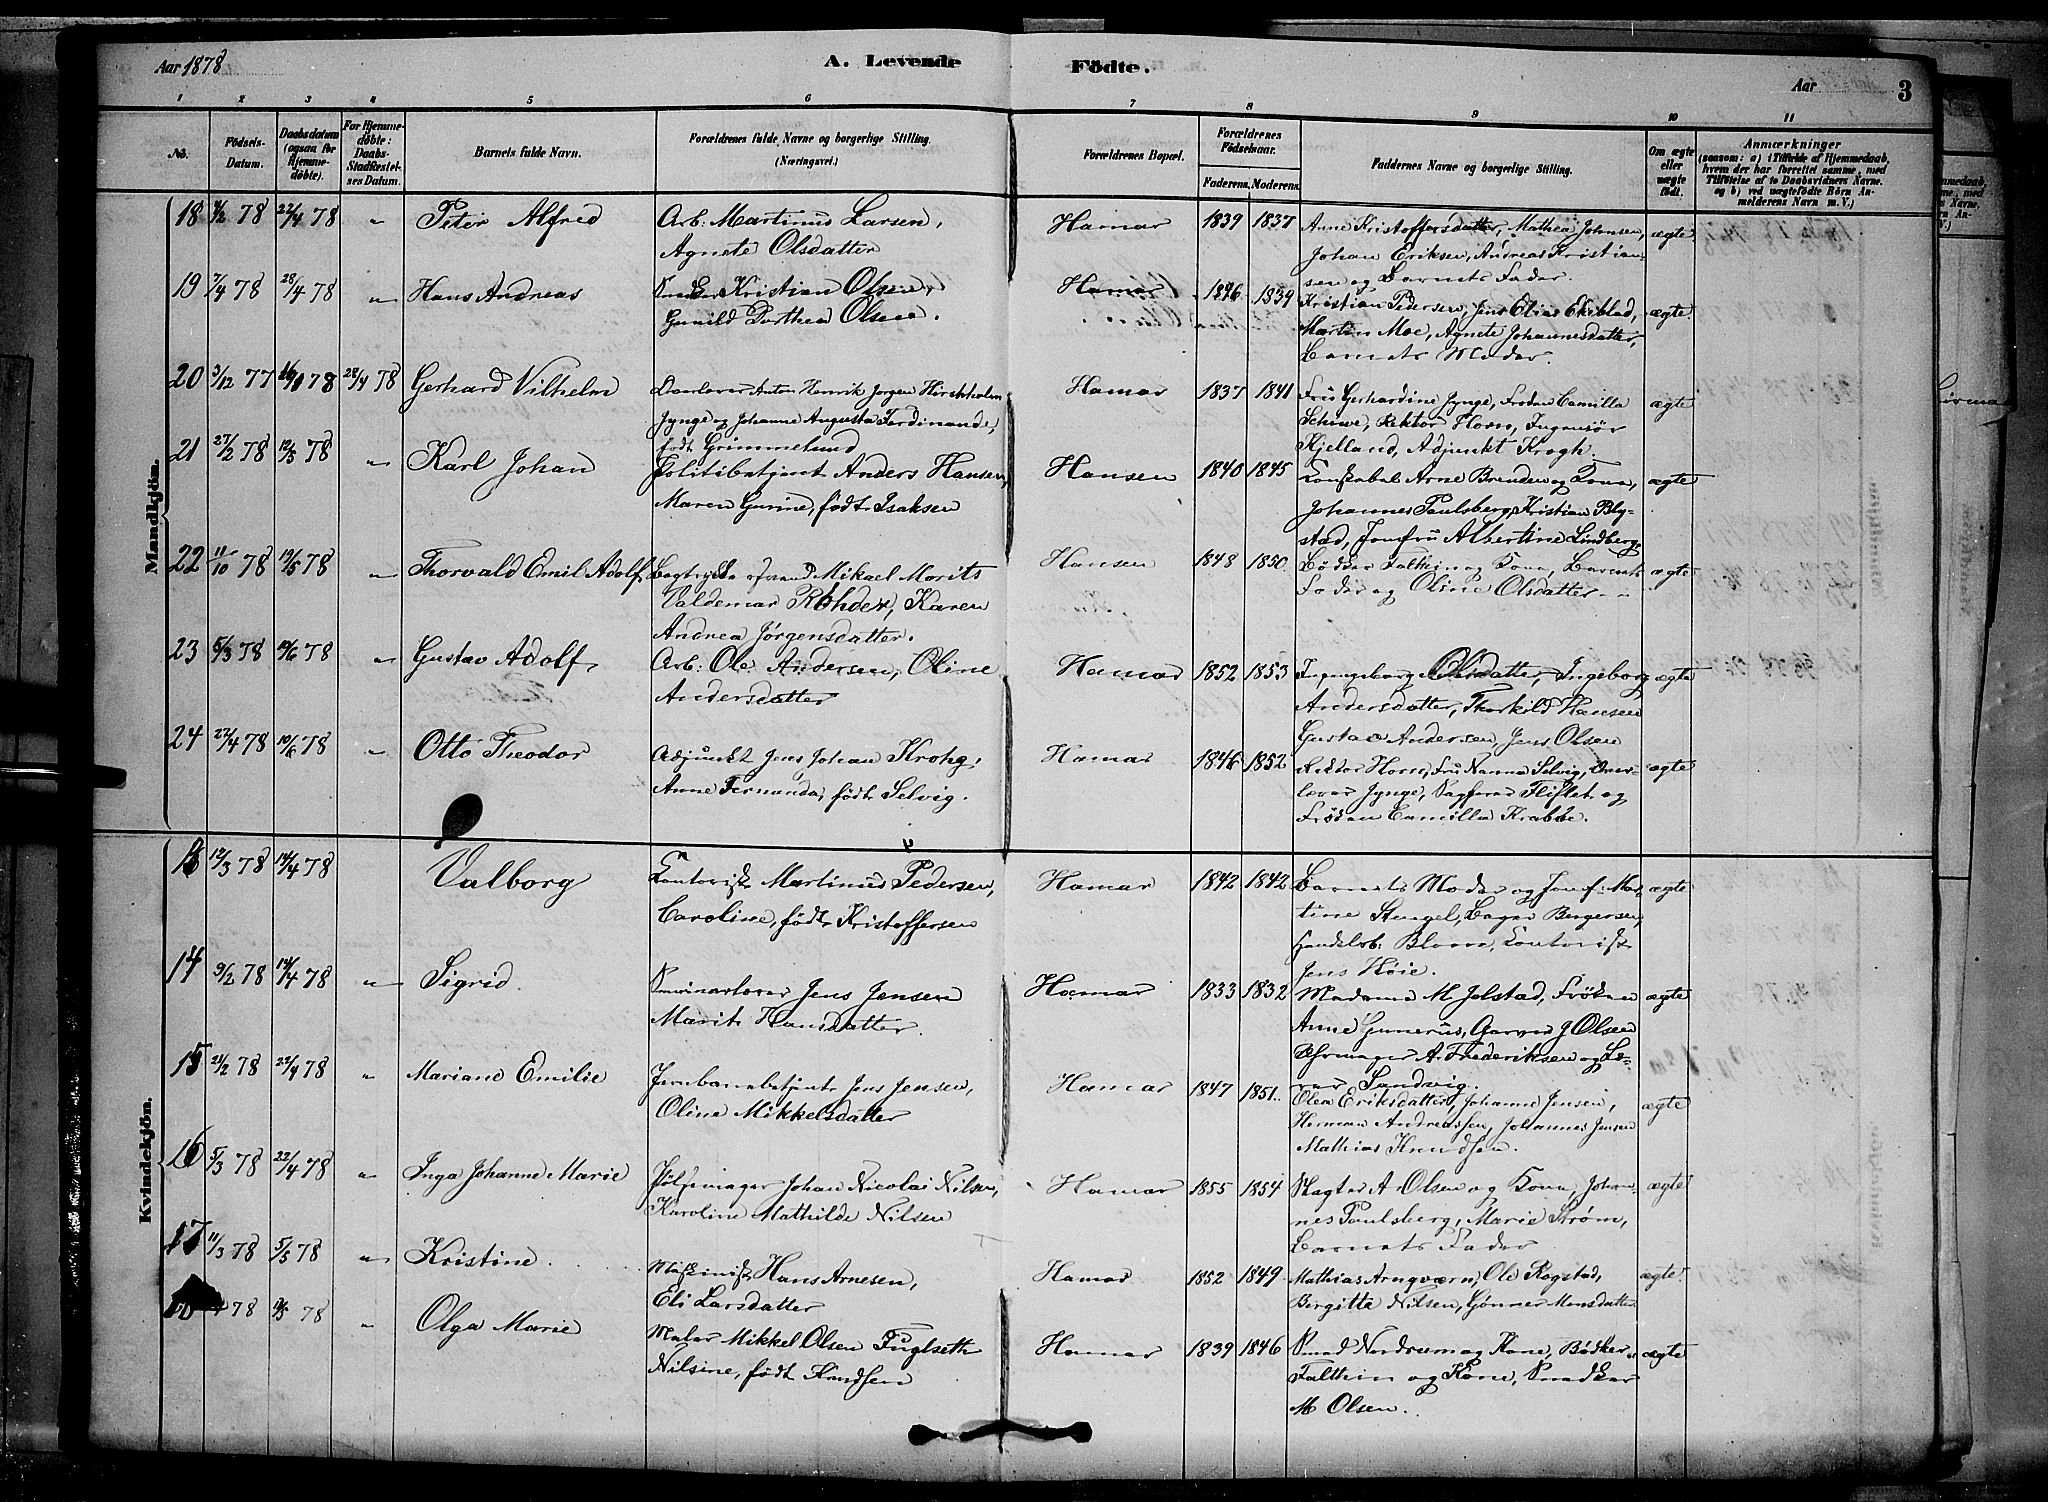 Aar 1878
A. Levende
Födte.
Aar
3
1 2 3 4 5 6 7 8 9 10 11
No.
Födsels-
Datum.
Daabsdatum
(ogsaa for
Hjemme-
döbte).
For Hjemme-
döbte:
Daabs-
Stadfæstel-
ses Datum.
Barnets fulde Navn.
Forældrenes fulde Navne og borgerlige Stilling.
(Næringsvei.)
Forældrenes Bopæl.
Forældrenes
Födselsaar.
Faderens. Moderens.
Faddernes Navne og borgerlige Stilling.
Om ægte
eller
uægte
født.
Anmærkninger
(saasom: a) i Tilfælde af Hjemmedaab,
hvem der har forrettet samme, med
Tilföielse af to Daabsvidners Navne.
og b) ved uægtefödte Börn An-
melderens Navn m. V.)
Mandkjön.
18 4/2 78 22/4 78 " Peter Alfred
Arb: Martinus Larsen,
Agnete Olsdatter
Hamar 1839 1837
Anne Kristoffersdatter, Mathea Johnsen,
Johan Eriksen, Andreas Kristian-
sen og Barnets Fader.
ægte
19 7/4 78 28/4 78 " Hans Andreas
Kristian Olsen,
Gunild Dorthea Olsen.
Hamar 1839
Kristian Pedersen, Jens Elias Ekeblad,
Martin Moe, Agnete Johannesdatter,
Barnets Moder.
ægte
20 3/12 77 78 28/4 78 Gerhard Vilhelm
Overlærer Anton Henrik Jörgen Hirschholm
Jynge og Johanne Augusta Ferdinande,
født Grimmelund
Hamar 1837 1841
Fru Gerhardine Jynge, Frøken Camilla
Schiwe, Rektor Horn, Ingeniør
Kjelland, Adjunkt Krogh.
ægte
21 27/2 78 12/5 78 " Karl Johan
Politibetjent Anders Hansen,
Maren Gurine, født Isaksen
Hansen 1840 1845
Konstabel Arne Brenden og Kone,
Johannes Paulsberg, Kristian Bly-
stad, Jomfru Albertine Lindberg.
ægte
22 11/10 78 19/5 78 " Thorvald Emil Adolf
Mikael Morits
Valdemar Rohder, Karen
Andrea Jørgensdatter.
Hansen 1848 1850
Bødker Falthin og Kone, Barnets
Fader og Oline Olsdatter
ægte
23 5/3 78 10/6 78 " Gustav Adolf
Arb: Ole Andersen, Oline
Andersdatter
Hamar 1852 1853
Ingeborg Olsdatter, Ingeborg
Andersdatter, Thorkild Hansen
Gustav Andersen, Jens Olsen
ægte
24 22/4 78 10/6 78 " Otto Theodor
Adjunkt Jens Johan Krohg,
Anne Fernanda, født Selvig.
Hamar 1846 1852
Rektor Horn, Fru Nanna Selvig, Over-
lærer Jynge, Sagfører Fliflet og
Frøken Camilla Krabbe.
ægte
Kvindekjön.
13 12/3 78 14/4 78 Valborg
Kontorist Martinus Pedersen,
Caroline, født Kristoffersen
Hamar 1842 1842
Barnets Moder og Jomf: Mar-
tine Stengel, Bager Bergersen,
Handelsb: Blom, Kontorist
Jens Høie.
ægte
14 9/2 78 14/4 78 " Sigrid.
Seminarlærer Jens Jensen
Marit Hansdatter.
Hamar 1833 1832
Madame M. Jolstad, Frøken
Anne Gunerus, Garver J Olsen
Uhrmager A. Frederiksen og Læ-
rer Sandvig.
ægte
15 24/2 78 22/4 78 " Mariane Emilie
Jernbanebetjent Jens Jensen,
Oline Mikkelsdatter
Hamar 1847 1851
Olea Eriksdatter, Johanne Jensen,
Herman Andreassen, Johannes Jensen
Mathias Knudsen.
ægte
16 5/3 78 22/4 78 " Inga Johanne Marie
Pølsemager Johan Nicolai Nilsen,
Karoline Mathilde Nilsen
Hamar 1855 1854
Slagter A Olsen og Kone, Johan-
nes Paulsberg, Marie Strøm,
Barnets Fader
ægte
17 11/3 78 5/5 78 " Kristine.
Maskinist Hans Arnesen,
Eli Larsdatter
Hamar 1852 1849
Mathias Arnqværn, Ole Rogstad,
Birgitte Nilsen, Gønner Monsdatter
ægte
78 78 " Olga Marie
Maler Mikkel Olsen Fuglseth
Nilsine, født Knudsen
Hamar 1839 1846
Smed Nordrum og Kone, Bødker
Falthin og Kone, Snedker
M Olsen.
ægte